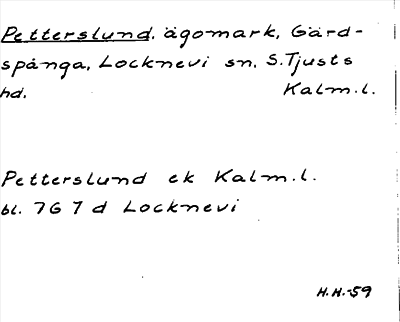 Petterslund, ägomark, Gärd-
spånga, Locknevi sn, S. Tjusts
hd. Kalm.l.
Petterslund ek Kalm.l.
bl. 7G 7d Locknevi
H.H.-59